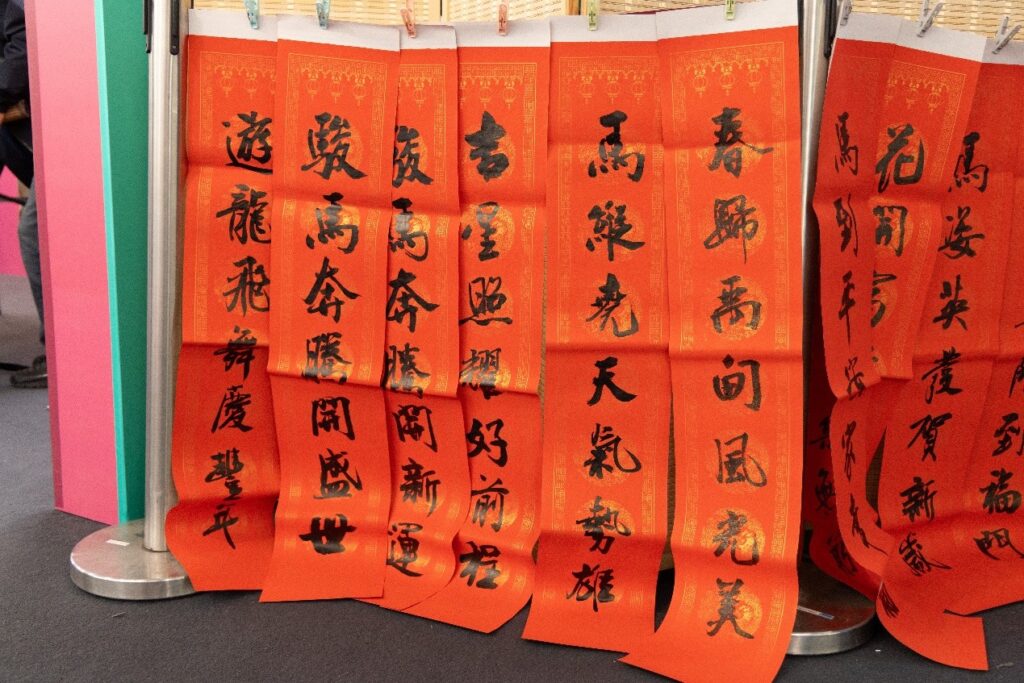 到福
馬姿英發賀新歲
花開富
馬到平安家
春歸禹甸風光美
馬縱堯天氣勢雄
吉星照耀好前程
駿馬奔騰開新運
駿馬奔騰開盛世
遊龍飛舞慶豐年